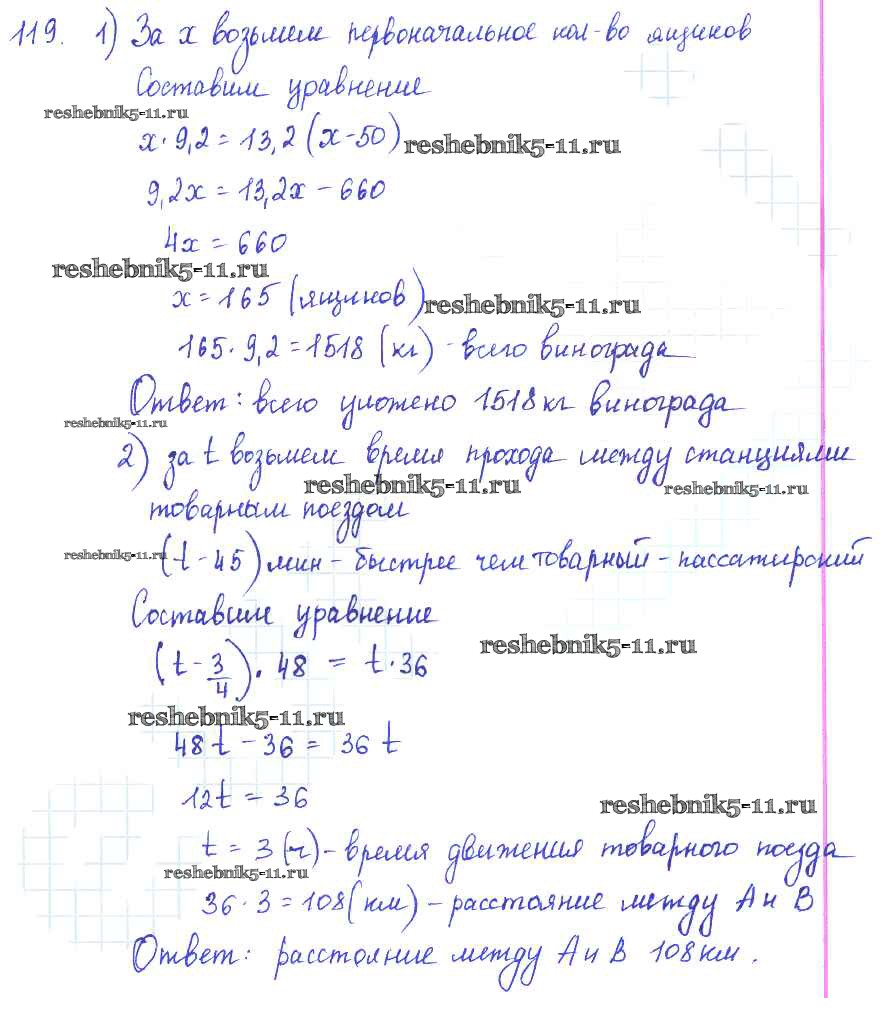 119. 1) За x возьмем первоначальное кол-во ящиков
Составим уравнение
reshebnik5-11.ru
x·9,2 = 13,2(x-50) reshebnik5-11.ru
9,2x = 13,2x - 660
4x = 660
reshebnik5-11.ru
x = 165 (ящиков) reshebnik5-11.ru
165·9,2 = 1518 (кг) - всего винограда
Ответ: всего уложено 1518 кг винограда
reshebnik5-11.ru
2) за t возьмем время прохода между станциями
reshebnik5-11.ru reshebnik5-11.ru
товарным поездом
reshebnik5-11.ru (t - 45) мин - быстрее чем товарный - пассажирский
Составим уравнение
reshebnik5-11.ru
(t - 3/4)·48 = t·36
reshebnik5-11.ru
48t - 36 = 36t
12t = 36
reshebnik5-11.ru
t = 3 (ч) - время движения товарного поезда
reshebnik5-11.ru
36·3 = 108 (км) - расстояние между А и В
Ответ: расстояние между А и В 108 км.